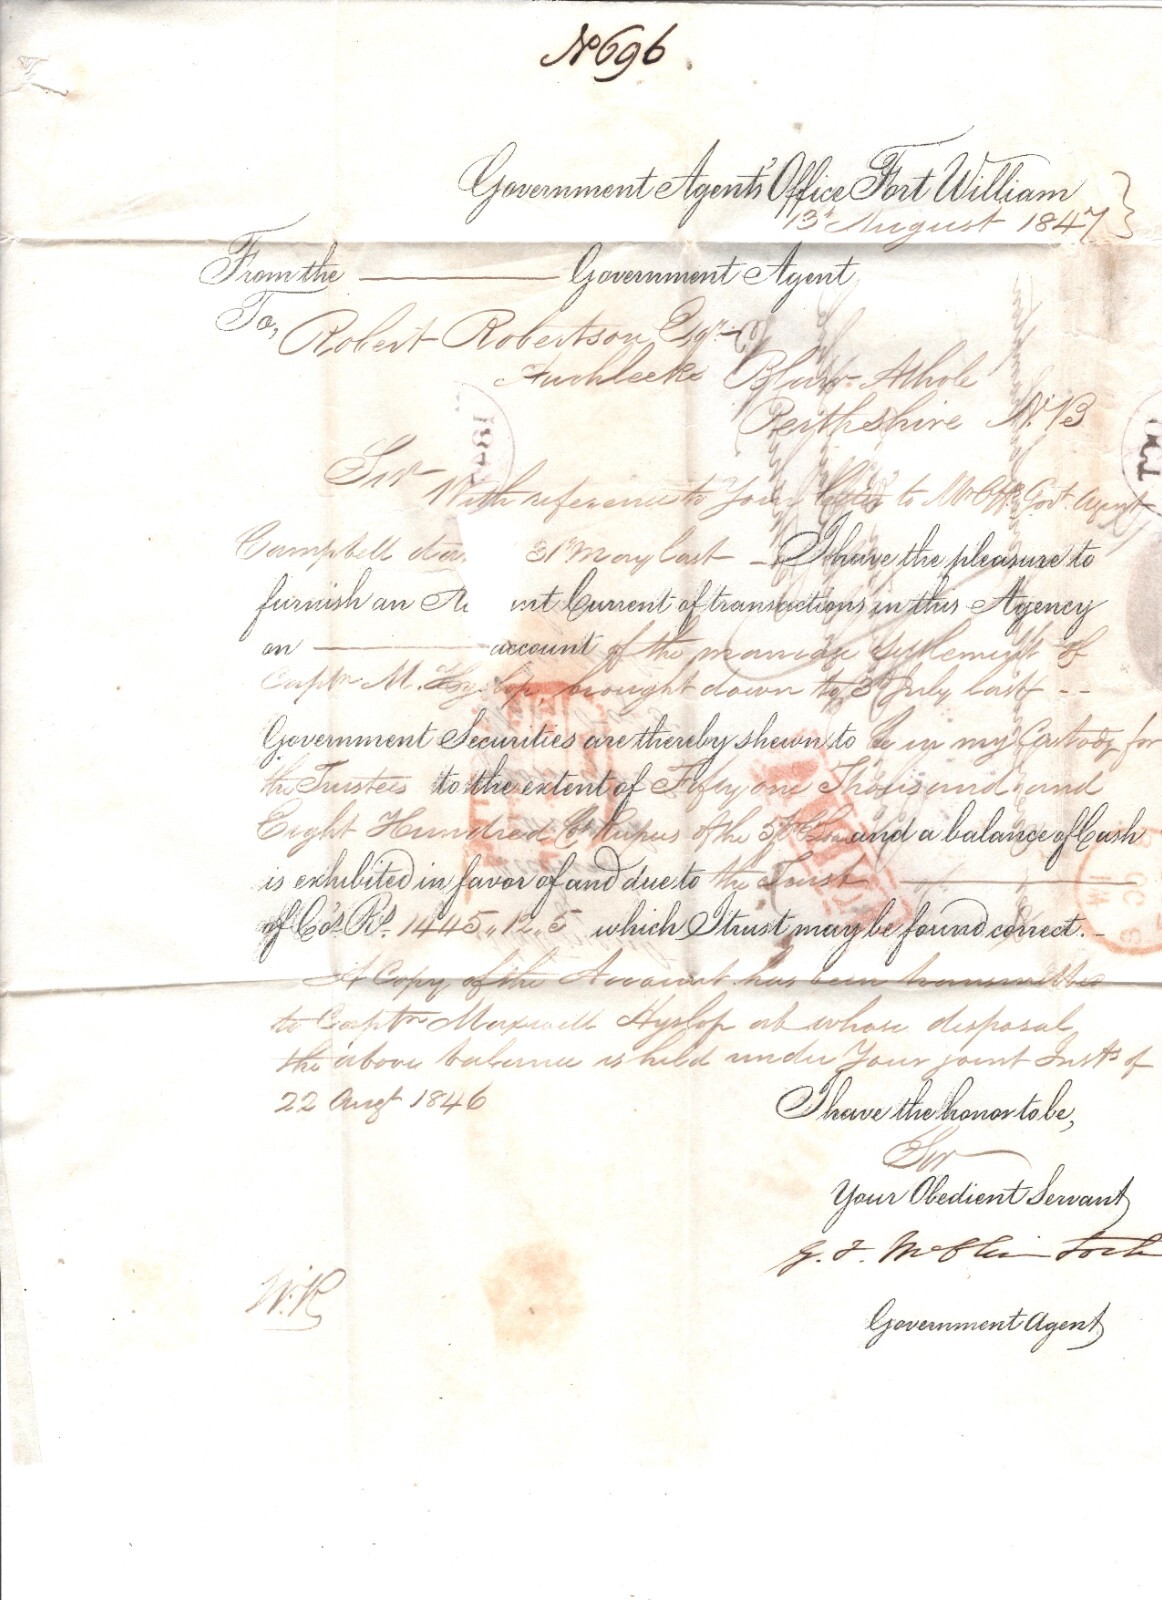 No 696.
Government Agents' Office Fort William
13th August 1847
From the Government Agent
To,
Robert Robertson Esqr
Auchleeks Blair Athole
Perthshire N.B
Sir
With reference to Your letter to Mr Offg Govt. Agent
Campbell 31st May last I have the pleasure to
furnish an Current of transactions in this Agency
on account of the marriage Settlement of
Captn M. Hyslop, brought down to 3 July last --
Government Securities are thereby shewn to be in my Custody for
the Trustees to the extent of Fifty one Thousand and
Eight Hundred Co's Rupees of the 5 and a balance of Cash
is exhibited in favor of and due to the Trust
of Co's Rs. 1445,,12,,5 which I trust may be found correct.-
A Copy of the Account has been transmitted
to Captn Maxwell Hyslop at whose disposal
the above balance is held under Your joint Insts of
22 Augt 1846
I have the honor to be,
Sir
Your Obedient Servant
G. F. McClintock
Government Agent
W.R
184
OCT